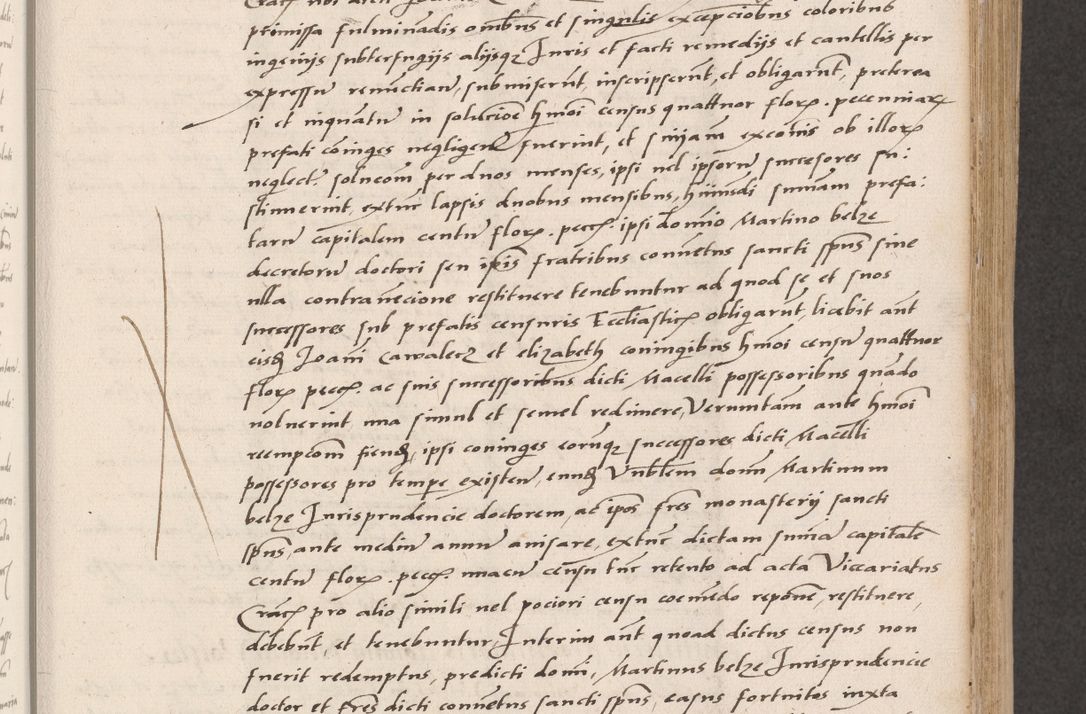 premissa fulminandis omnibus et singulis excepcionibus coloribus
ingeniis subterfugiis aliisque Iuris et facti remediis et cautellis per
expressum renunctian, submiserunt, inscripserunt, et obligarunt, preterea
si et inquantum in solucione hmoi census quattuor florꝝ. pecuniarꝝ
prefati coniuges negligen fuerint, et sniam excomis ob illorꝝ
neglect. solucom per duos menses, ipsi vel ipsorum successores su:
stinuerint, extunc lapsis duobus mensibus, huiusdi sumam prefa:
tam capitalem centum florꝝ. pecc. ipsi domino Martino belze
decretorum doctori seu ipsis fratribus conventus sancti spus sine
ulla contradnecione restituere tenebuntur ad quod se et suos
successores sub prefatis censuris Ecclasticꝝ obligarunt, licebit aut
eisdem Ioanni Cawalecz et elizabeth coniugibus hmoi censum quattuor
florꝝ pecc. ac suis successoribus dicti Macelli possessoribus quando
voluerint, una simul et semel redimere, Veruntam ante hmoi
reempcom fiendam, ipsi coniuges eorumque successores dicti Macelli
possessores pro tempe existen, eundem Vnblem domn Martinum
belze Iurisprudencie doctorem, ac ipos fres monasterij sancti
spus, ante medium annum avisare, extunc dictam sumam capitale
centum florꝝ. pecc. unacum censu tunc retento ad acta Viccariatus
Cracꝝ pro alio simili vel pociori censu coemendo reponere, restituere,
debebunt, et tenebuntur, Interim aut quoad dictus census non
fuerit redemptus, predicti domi, Martinus belze Iurisprudencie
doctor et fres dicti conventus sancti spus, casus fortuitos iuxta